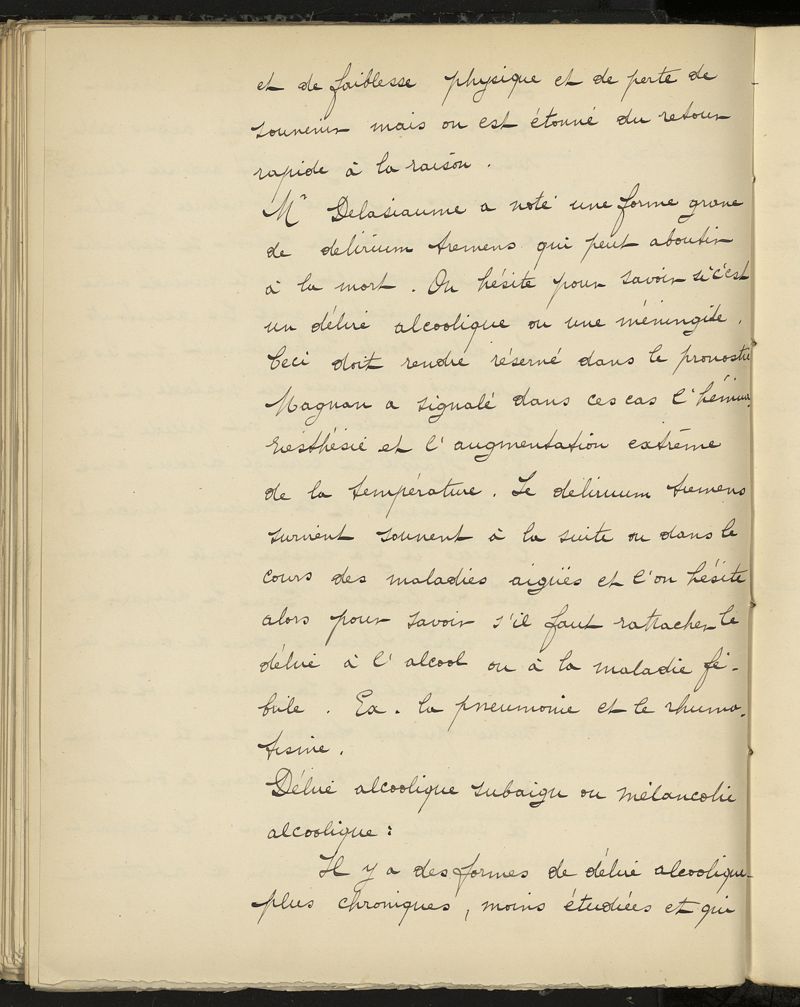 et de faiblesse physique et de perte de
souvenir mais on est étonné du retour
rapide à la raison.
Mr Delasiaume a noté une forme grave
de delirium tremens qui peut aboutir
à la mort. On hésite pour savoir si c'est
un délire alcoolique ou une méningite.
Ceci doit rendre réservé dans le pronostic
Magnan a signalé dans ces cas l'hémia-
nesthésie et l'augmentation extrême
de la température. Le délirium tremens
survient souvent à la suite ou dans le
cours des maladies aigües et l'on hésite
alors pour savoir s'il faut rattacher le
délire à l'alcool ou à la maladie fé-
brile. Ex. la pneumonie et le rhuma-
tisme.
Délire alcoolique subaigu ou mélancolie
alcoolique :
Il y a des formes de délire alcoolique
plus chroniques, moins étudiées et qui